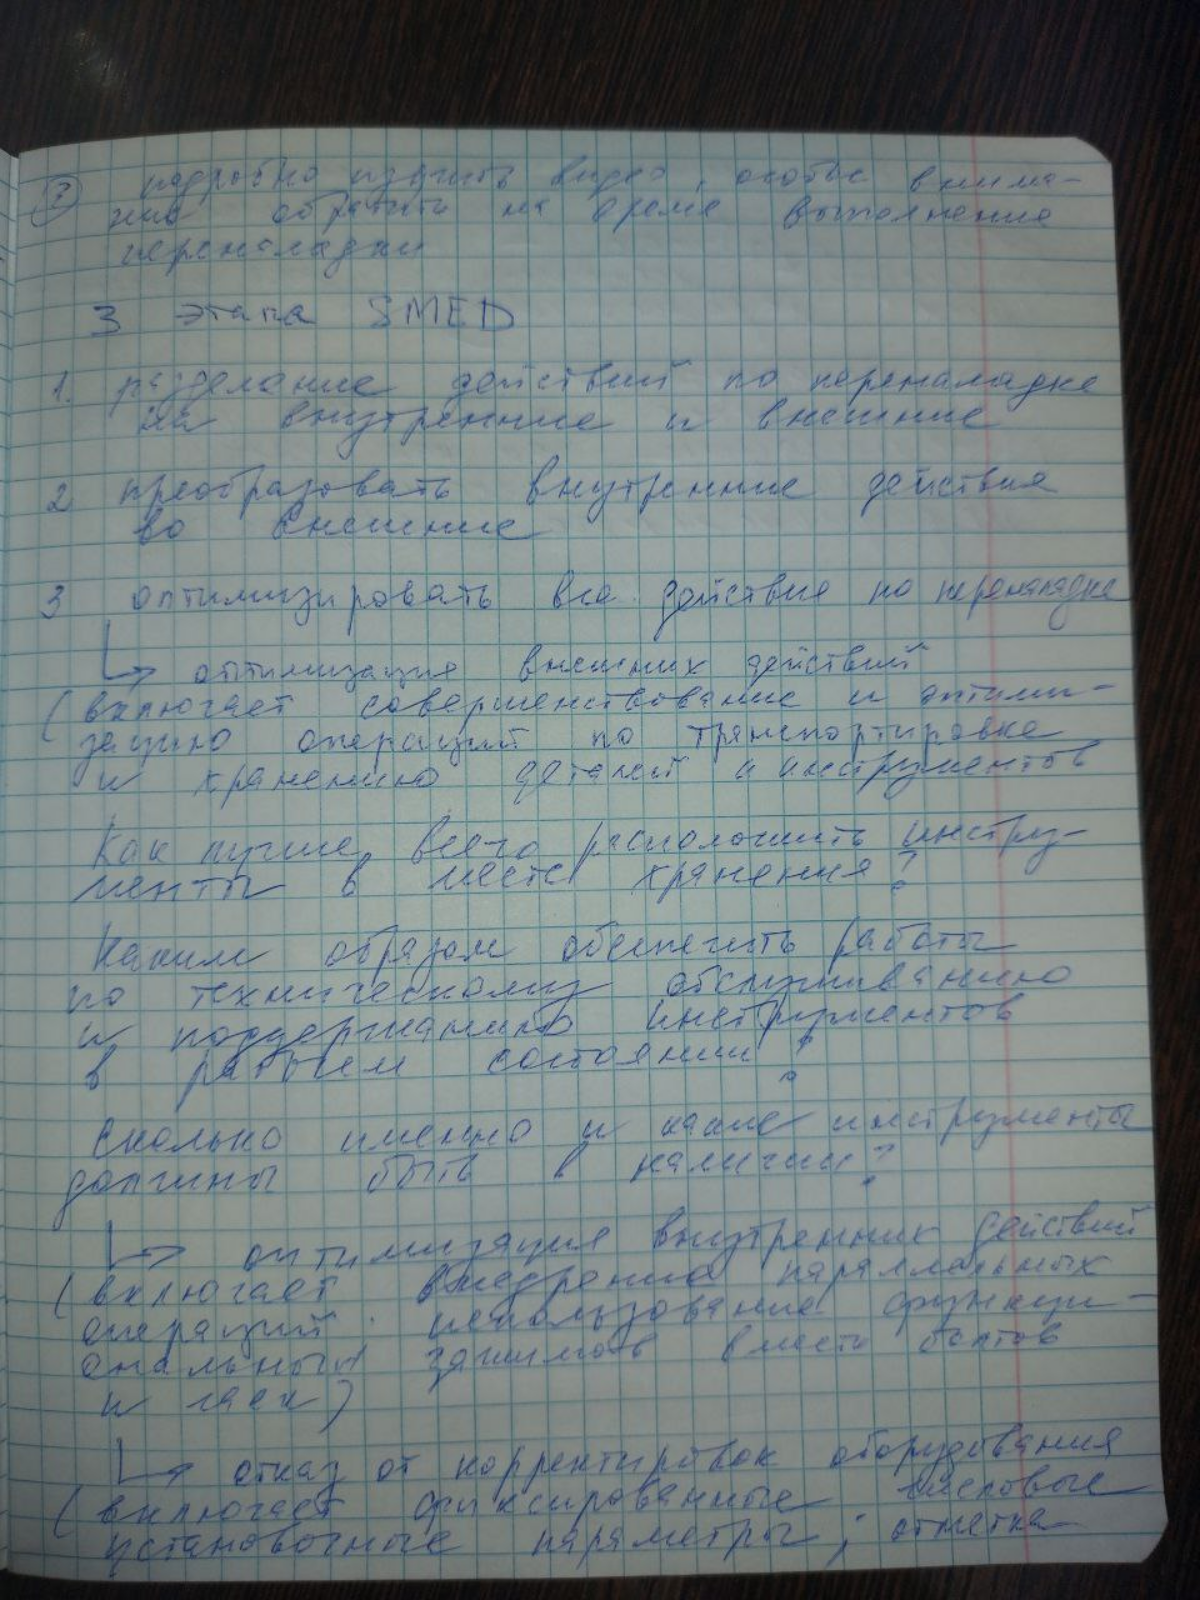 ③ подробно изучить видео, особое внима-
ние обратить на время выполнения
переналадки
3 этапа SMED
1. разделение действий по переналадке
на внутренние и внешние
2 преобразовать внутренние действия
во внешние
3 оптимизировать все действия по переналадке
↳ оптимизация внешних действий
(включает совершенствование и оптими-
зацию операций по транспортировке
и хранению деталей и инструментов
Как лучше всего расположить инстру-
менты в месте хранения?
Каким образом обеспечить работы
по техническому обслуживанию
и поддержанию инструментов
в рабочем состоянии?
Сколько именно и какие инструменты
должны быть в наличии?
↳ оптимизация внутренних действий
(включает внедрение параллельных
операций; использование функци-
ональных зажимов вместо болтов
и гаек)
↳ отказ от корректировок оборудования
(включает фиксированные числовые
установочные параметры; отметка